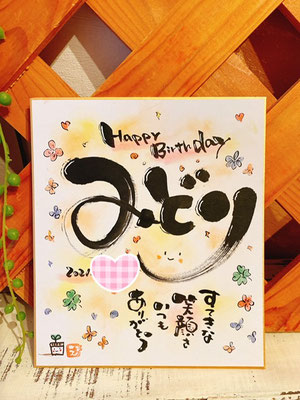 Happy
Birthday
みどり
2021
すてきな
笑顔を
いつも
ありがとう